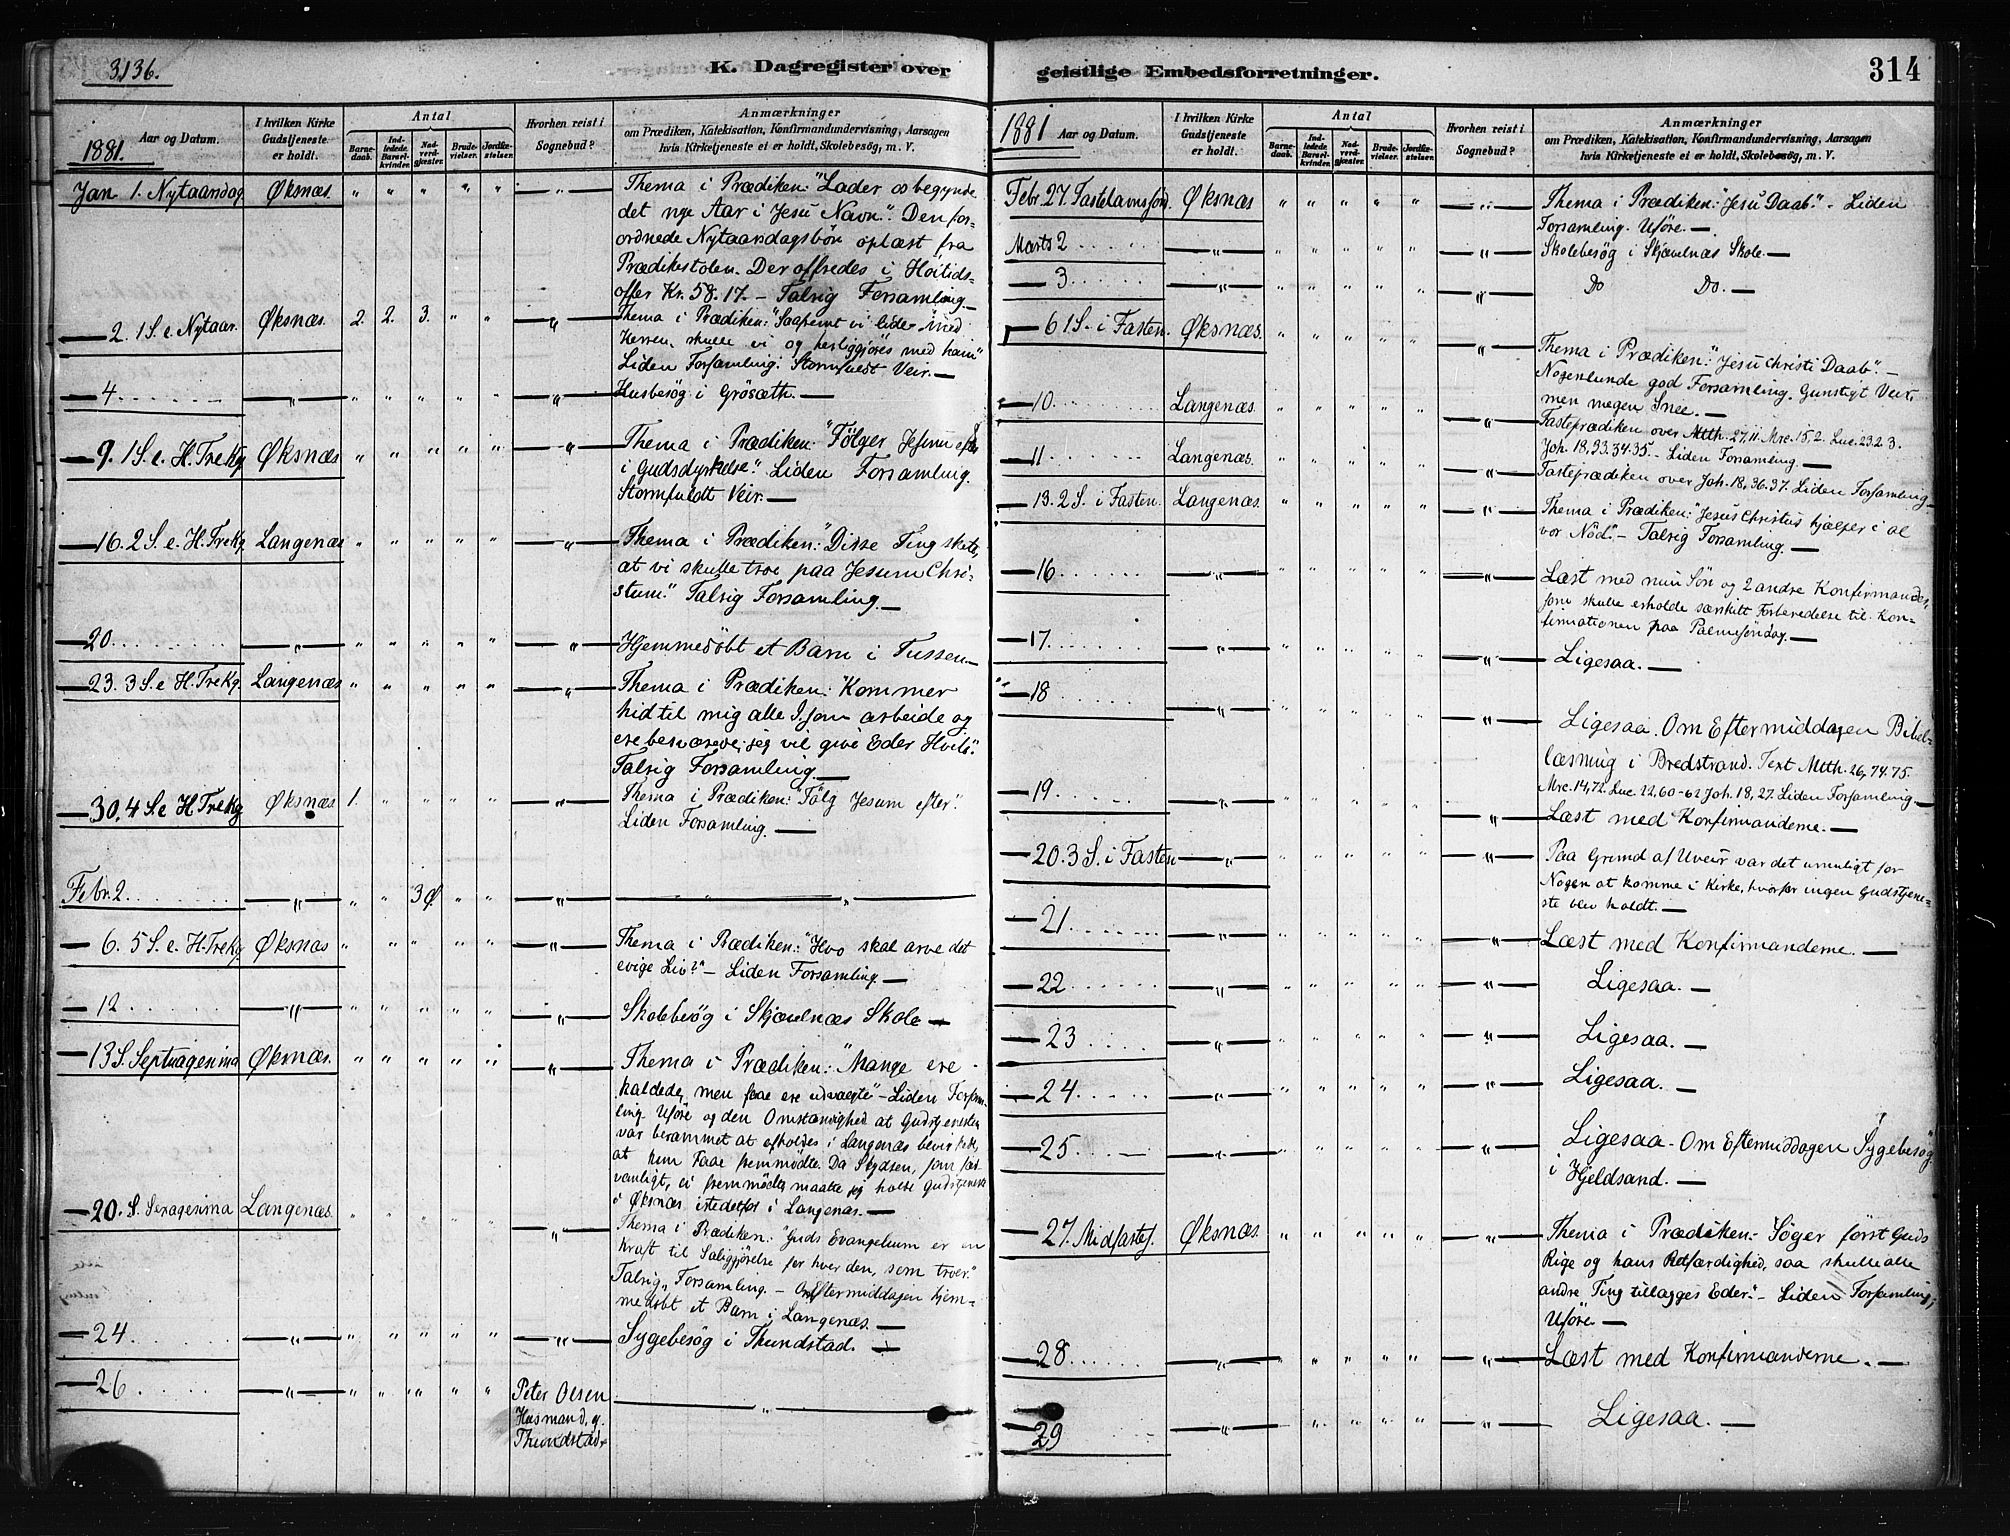 3136.
K. Dagregister over
Aar og Datum.
I hvilken Kirke Gudstjeneste er holdt.
Antal
Barnedaab.
Indledede Barselkvinder.
Nadverdgjæster.
Brudevielser.
Jordfæstelser.
Hvorhen reist i Sognebud?
Anmærkninger
om Prædiken, Katekisation, Konfirmandundervisning, Aarsagen
hvis Kirketjeneste ei er holdt, Skolebesög, m. V.
1881.
Jan 1. Nytaarsdag Øksnæs " " " " " " Thema i Prædiken: "Lader os begynde
det nye Aar i Jesu Navn". Den for-
ordnede Nytaarsdagsbön oplæst fra
Prædikestolen. Der offredes i Höitids-
offer Kr. 58.17. — Talrig Forsamling. —
— 2. 1 S. e. Nytaar. Øksnæs. 2. 2. 3. " " " Thema i Prædiken: "Saafremt vi lider med
Herren, skulle vi og herliggjöres med ham"
Liden Forsamling. Stormfuldt Veir. —
— 4 . . . . " " " " " " " Husbesög i Grösæth. —
— 9. 1 S. e. H. Tre Kg Øksnæs " " " " " " Thema i Prædiken: "Fölger Jesum efter
i Gudsdyrkelse". Liden Forsamling.
Stormfuldt Veir. —
— 16. 2 S. e. H. Tre Kg Langenæs " " " " " " Thema i Prædiken: "Disse Ting skete,
at vi skulle troe paa Jesum Chri-
stum." Talrig Forsamling. —
— 20. . . . . " " " " " " " Hjemmedöbt et Barn i Tussen. —
— 23. 3 S. e H. Tre Kg. Langenæs " " " " " " Thema i Prædiken: "Kommer
hid til mig alle I, som arbeide og
ere besværede; jeg vil give Eder Hvile".
Talrig Forsamling. —
— 30. 4 S. e H. Tre Kg Øksnæs 1. " " " " " Thema i Prædiken: "Fölg Jesum efter".
Liden Forsamling. —
Febr. 2. . . . . " " " 3 Ø. " " " "
— 6. 5 S. e. H. Tre Kg Øksnæs " " " " " " Thema i Prædiken: "Hvo skal arve det
evige Liv?" — Liden Forsamling. —
— 12 . . . . " " " " " " " Skolebesög i Skjævelnæs Skole —
— 13 S. Septuagesima Øksnæs. " " " " " " Thema i Prædiken: "Mange ere
kaldede, men faae ere udvalgte" — Liden Forsam-
ling. Uföre og den Omstændighed at Gudstjenesten
var berammet at afholdes i Langenæs bevirkede,
at kun Faae fremmödte. Da Skydsen, som sæd-
vanligt, ei fremmödte, maatte jeg holde Gudstjeneste
i Øksnæs istedetfor i Langenæs. —
— 20. S. Sexagesima Langenæs. " " " " " " Thema i Prædiken: "Guds Evangelium er en
Kraft til Saliggjörelse for hver den, som troer."
Talrig Forsamling. — Om Eftermiddagen hjem-
medöbt et Barn i Langenæs. —
— 24 . . . . " " " " " " " Sygebesög i Thundstad. —
— 26 . . . . " " " " " " Peter Olsen "
Husmand, g.
Thundstad.
geistlige Embedsforretninger.
314
Aar og Datum.
I hvilken Kirke Gudstjeneste er holdt.
Antal
Barnedaab.
Indledede Barselkvinder.
Nadverdgjæster.
Brudevielser.
Jordfæstelser.
Hvorhen reist i Sognebud?
Anmærkninger
om Prædiken, Katekisation, Konfirmandundervisning, Aarsagen
hvis Kirketjeneste ei er holdt, Skolebesög, m. V.
1881
Febr. 27. Fastelavnssönd. Øksnæs " " " " " " Thema i Prædiken: "Jesu Daab." — Liden
Forsamling. Uföre. —
Marts 2 . . . . " " " " " " " Skolebesög i Skjævelnæs Skole. —
— 3 . . . . " " " " " " " Do Do. —
— 6 1 S. i Fasten. Øksnæs. " " " " " " Thema i Prædiken: "Jesu Christi Daab". —
Nogenlunde god Forsamling. Gunstigt Veir,
men megen Snee. —
— 10. . . . . Langenæs. " " " " " " Fasteprædiken over Mtth. 27,11. Mrc. 15,2. Luc. 23.2 3.
Joh. 18,33.34.35. — Liden Forsamling. —
— 11 . . . . Langenæs. " " " " " " Fasteprædiken over Joh. 18, 36.37. Liden Forsamling —
— 13. 2 S. i Fasten. Langenæs. " " " " " " Thema i Prædiken: "Jesus Christus hjælper i al
vor Nöd". — Talrig Forsamling. —
— 16 . . . . " " " " " " " Læst med min Sön og 2 andre Konfirmander,
som skulle erholde særskilt Forberedelse til Kon-
firmationen paa Palmesöndag. —
— 17. . . . . " " " " " " " Ligesaa. —
— 18 . . . . " " " " " " " Ligesaa. Om Eftermiddagen Bibel-
læsning i Bredstrand. Text Mtth. 26, 74.75.
Mrc. 14,72. Luc. 22,60-62 Joh. 18, 27. Liden Forsamling. —
— 19. . . . . " " " " " " " Læst med Konfirmanderne. —
— 20. 3 S. i Fasten " " " " " " " Paa Grund af Uveir var det umuligt for
Nogen at komme i Kirke, hvorfor ingen Gudstjene-
ste blev holdt. —
— 21. . . . . " " " " " " " Læst med Konfirmanderne. —
— 22 . . . . " " " " " " " Ligesaa. —
— 23 . . . . " " " " " " " Ligesaa. —
— 24 . . . . " " " " " " " Ligesaa. —
— 25. . . . . " " " " " " " Ligesaa — Om Eftermiddagen Sygebesög
i Hjeldsand. —
— 27. Midfastes. Øksnæs. " " " " " " Thema i Prædiken: Söger först Guds
Rige og hans Retfærdighed, saa skulle alle
andre Ting tillægges Eder". — Liden Forsamling;
Uföre. —
— 28 . . . . " " " " " " " Læst med Konfirmanderne. —
— 29 " " " " " " " Ligesaa. —